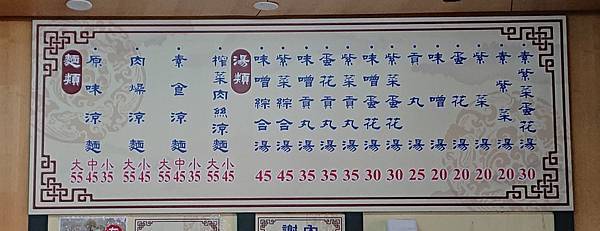 麵類
原味涼麵 大55 中45 小35
肉燥涼麵 大55 小45
素食涼麵 大55 中45 小35
榨菜肉絲涼麵 大55 小45
湯類
味噌綜合湯 45
紫菜綜合湯 45
味噌貢丸湯 35
蛋花貢丸湯 35
紫菜貢丸湯 35
味噌蛋花湯 30
紫菜蛋花湯 30
貢丸湯 25
味噌湯 20
蛋花湯 20
紫菜湯 20
素紫菜湯 20
素紫菜蛋花湯 30